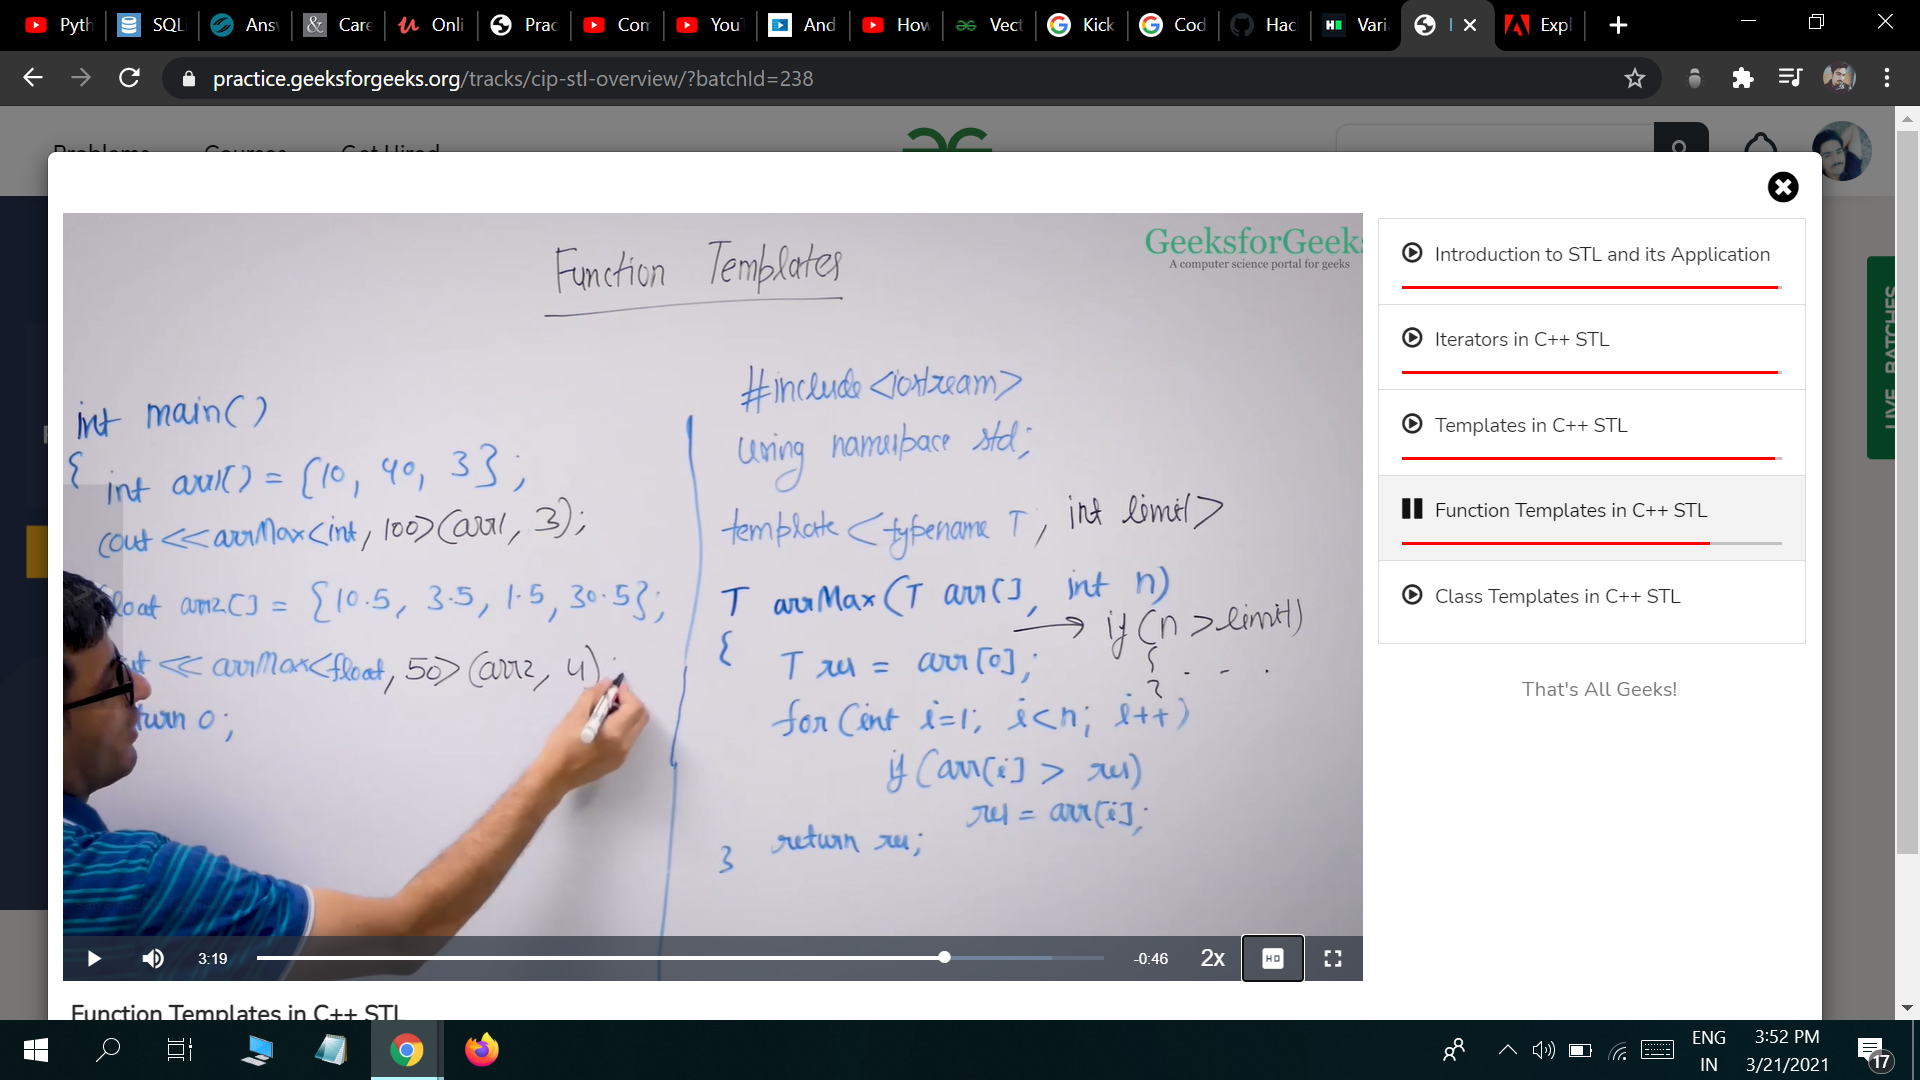 Pyth
SQL
Ans
Care
Onli
Prac
Com
YouT
And
How
Vect
Kick
Cod
Hac
Vari
I
Expl
practice.geeksforgeeks.org/tracks/cip-stl-overview/?batchId=238
Problems Courses Get Hired
GeeksforGeeks
A computer science portal for geeks
Function Templates
int main()
{ int arr1[] = {10, 40, 3};
cout <<arrMax<int, 100>(arr1, 3);
float arr2[] = {10.5, 3.5, 1.5, 30.5};
<< arrMax<float, 50>(arr2, 4);
turn 0;
#include <iostream>
using namespace std;
template <typename T, int limit>
T arrMax(T arr[], int n)
→ if (n > limit)
{ . - .
}
{ T res = arr[0];
for (int i=1; i<n; i++)
if (arr[i] > res)
res = arr[i];
return res;
}
3:19
-0:46
2x
HD
Function Templates in C++ STL
Introduction to STL and its Application
Iterators in C++ STL
Templates in C++ STL
Function Templates in C++ STL
Class Templates in C++ STL
That's All Geeks!
LIVE BATCHES
ENG
IN
3:52 PM
3/21/2021
17